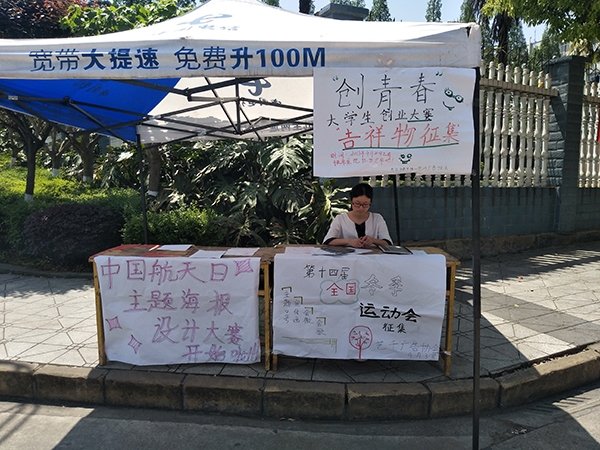 宽带大提速 免费升100M
"创青春"
大学生创业大赛
吉祥物征集
中国航天日
主题海报
设计大赛
开始啦!!!
第十四届
全国冬季
运动会
征集
主题口号
会徽
会歌